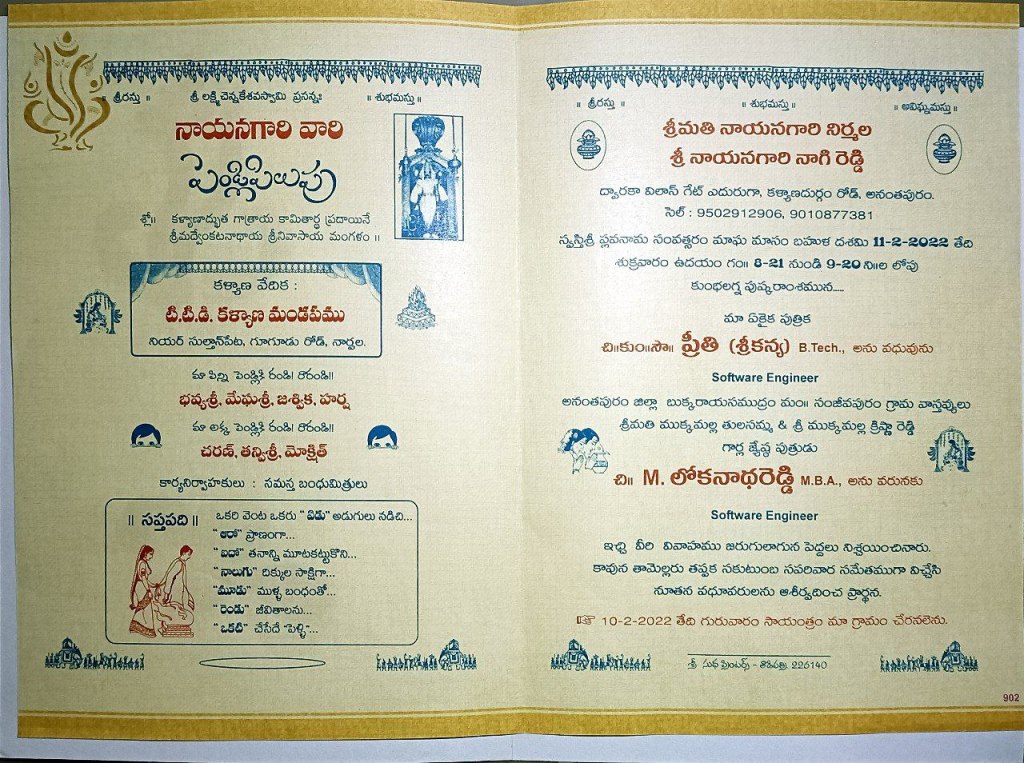 శ్రీరస్తు ॥ శ్రీ లక్ష్మిచెన్నకేశవస్వామి ప్రసన్నః ॥ శుభమస్తు ॥
నాయనగారి వారి
పెండ్లిపిలుపు
శ్లో॥ కళ్యాణాద్భుత గాత్రాయ కామితార్థ ప్రదాయినే
శ్రీమద్వేంకటనాథాయ శ్రీనివాసాయ మంగళం ॥
కళ్యాణ వేదిక :
టి.టి.డి. కళ్యాణ మండపము
నియర్ సుల్తాన్‌పేట, గూగూడు రోడ్, నార్పల.
మా పిన్ని పెండ్లికి రండి! రారండి!!
భవ్యశ్రీ, మేఘశ్రీ, జశ్విక, హర్ష
మా అక్క పెండ్లికి రండి! రారండి!!
చరణ్, తన్విశ్రీ, మోక్షిత్
కార్యనిర్వాహకులు : సమస్త బంధుమిత్రులు
॥ సప్తపది ॥
ఒకరి వెంట ఒకరు "ఏడు" అడుగులు నడిచి...
"ఆరో" ప్రాణంగా...
"ఐదో" తనాన్ని మూటకట్టుకొని...
"నాలుగు" దిక్కుల సాక్షిగా...
"మూడు" ముళ్ళ బంధంతో...
"రెండు" జీవితాలను...
"ఒకటి" చేసేదే "పెళ్ళి"...
॥ శ్రీరస్తు ॥ ॥ శుభమస్తు ॥ ॥ అవిఘ్నమస్తు ॥
శ్రీమతి నాయనగారి నిర్మల
శ్రీ నాయనగారి నాగి రెడ్డి
ద్వారకా విలాస్ గేట్ ఎదురుగా, కళ్యాణదుర్గం రోడ్, అనంతపురం.
సెల్ : 9502912906, 9010877381
స్వస్తిశ్రీ ప్లవనామ సంవత్సరం మాఘ మాసం బహుళ దశమి 11-2-2022 తేది
శుక్రవారం ఉదయం గం॥ 8-21 నుండి 9-20 ని॥ల లోపు
కుంభలగ్న పుష్కరాంశమున.....
మా ఏకైక పుత్రిక
చి॥కుం॥సౌ॥ ప్రీతి (శ్రీకన్య) B.Tech., అను వధువును
Software Engineer
అనంతపురం జిల్లా బుక్కరాయసముద్రం మం॥ సంజీవపురం గ్రామ వాస్తవ్యులు
శ్రీమతి ముక్కమల్ల తులసమ్మ & శ్రీ ముక్కమల్ల క్రిష్ణా రెడ్డి
గార్ల జ్యేష్ఠ పుత్రుడు
చి॥ M. లోకనాథరెడ్డి M.B.A., అను వరునకు
Software Engineer
ఇచ్చి వీరి వివాహము జరుగులాగున పెద్దలు నిశ్చయించినారు.
కావున తామెల్లరు తప్పక సకుటుంబ సపరివార సమేతముగా విచ్చేసి
నూతన వధూవరులను ఆశీర్వదించ ప్రార్థన.
☞ 10-2-2022 తేది గురువారం సాయంత్రం మా గ్రామం చేరవలెను.
శ్రీ సుధ ప్రింటర్స్ - తాడిపత్రి. 226140
902